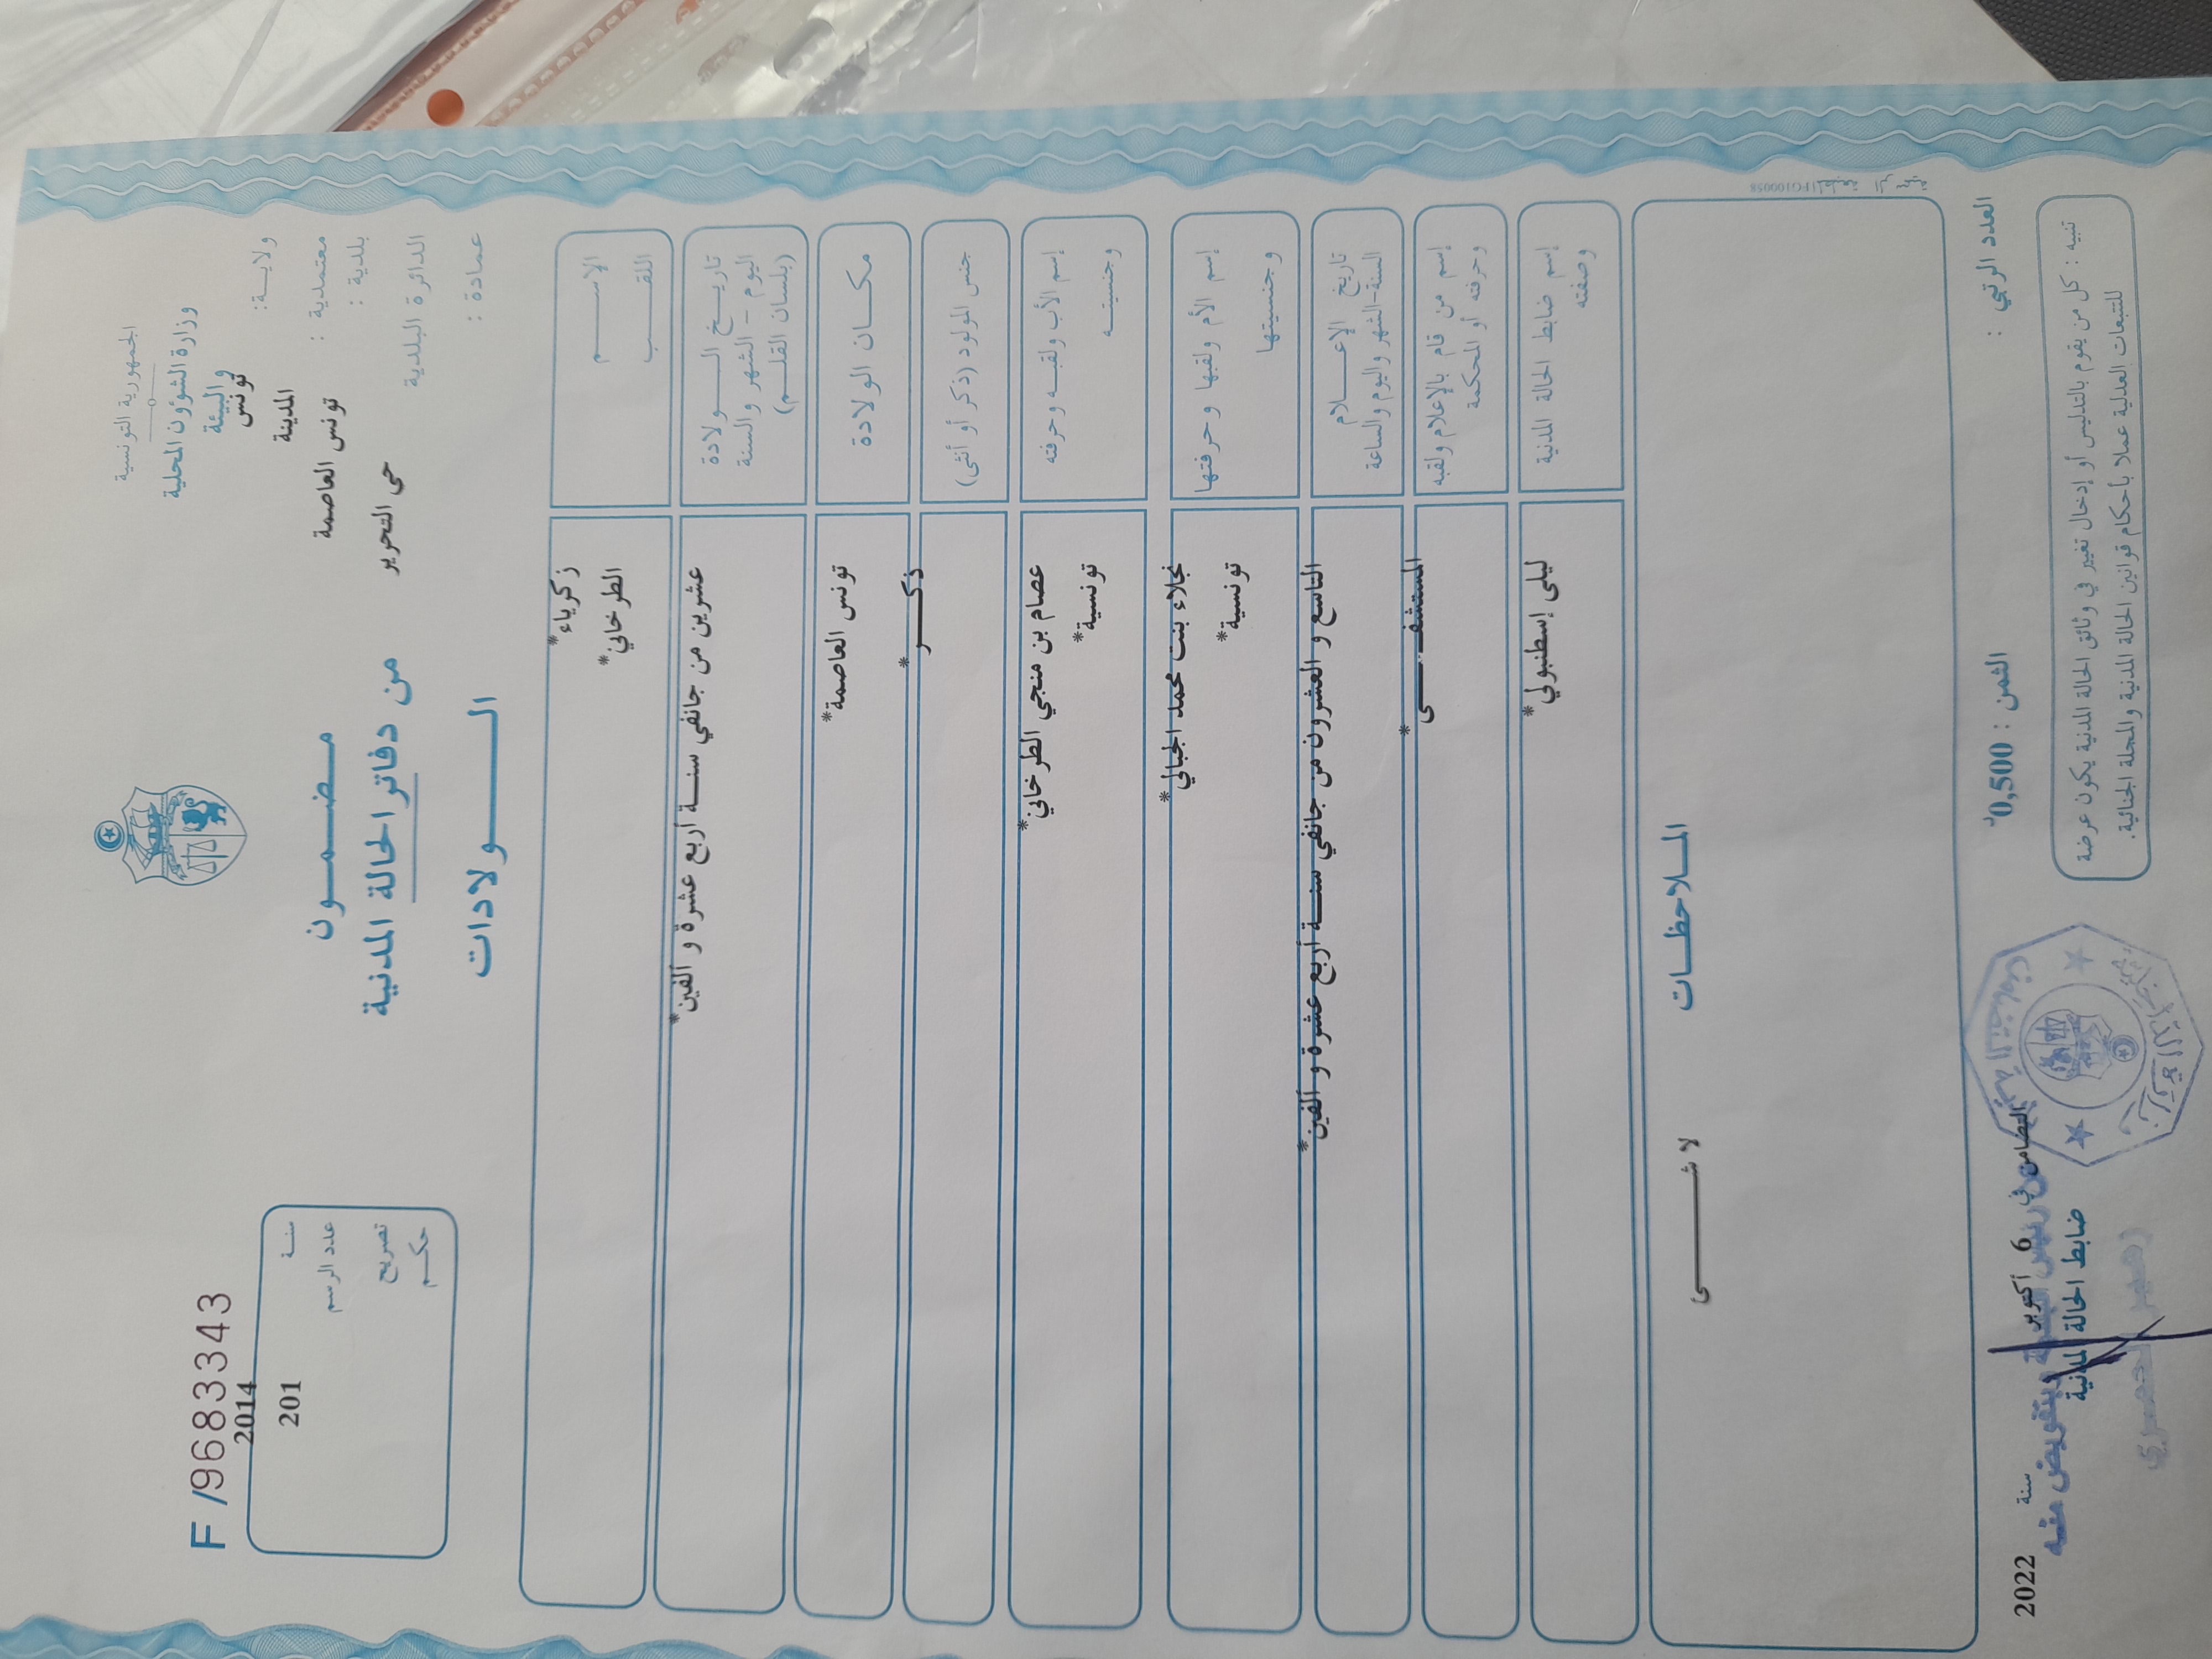 الجمهورية التونسية
وزارة الشؤون المحلية
والبيئة
ولايـــة: تونس
معتمدية : المدينة
بلدية : تونس العاصمة
الدائرة البلدية حي التحرير
عمادة :
F /9683343
2014
سنـــة
201
عدد الرسم
تصريح
حكــم
مـــضـــمـــون
من دفاتر الحالة المدنية
الـــــــولادات
الاســـــم زكرياء*
اللقـــــب الطرخاني*
تاريـــخ الـــــولادة
اليوم - الشهر والسنة
(بلسان القلـــم)
عشرين من جانفي سنـــة أربع عشرة و ألفين*
مكـــان الولادة
تونس العاصمة*
جنس المولود (ذكر أو أنثى)
ذكـــــر*
إسم الأب ولقبـــه وحرفته
وجنسيتـــه
عصام بن منجي الطرخاني*
تونسية*
إسم الأم ولقبها وحرفتها
وجنسيتها
نجلاء بنت محمد الجبالي*
تونسية*
تاريخ الإعـــــلام
السنة-الشهر واليوم والساعة
التاسع و العشرون من جانفي سنـــة أربع عشرة و ألفين*
إسم من قام بالإعلام ولقبه
وحرفته أو المحكمة
المستشفـــــى*
إسم ضابط الحالة المدنية
وصفته
ليلى إسطنبولي*
المـــلاحظـــات
لا شـــــــئ
العدد الرتبي :
الثمن : 0,500د
التضامن في 6 أكتوبر سنة 2022
ضابط الحالة المدنية
وبتفويض منه
تنبيه : كل من يقوم بالتدليس أو إدخال تغيير في وثائق الحالة المدنية يكون عرضة
للتتبعات العدلية عملا بأحكام قوانين الحالة المدنية والمجلة الجنائية.